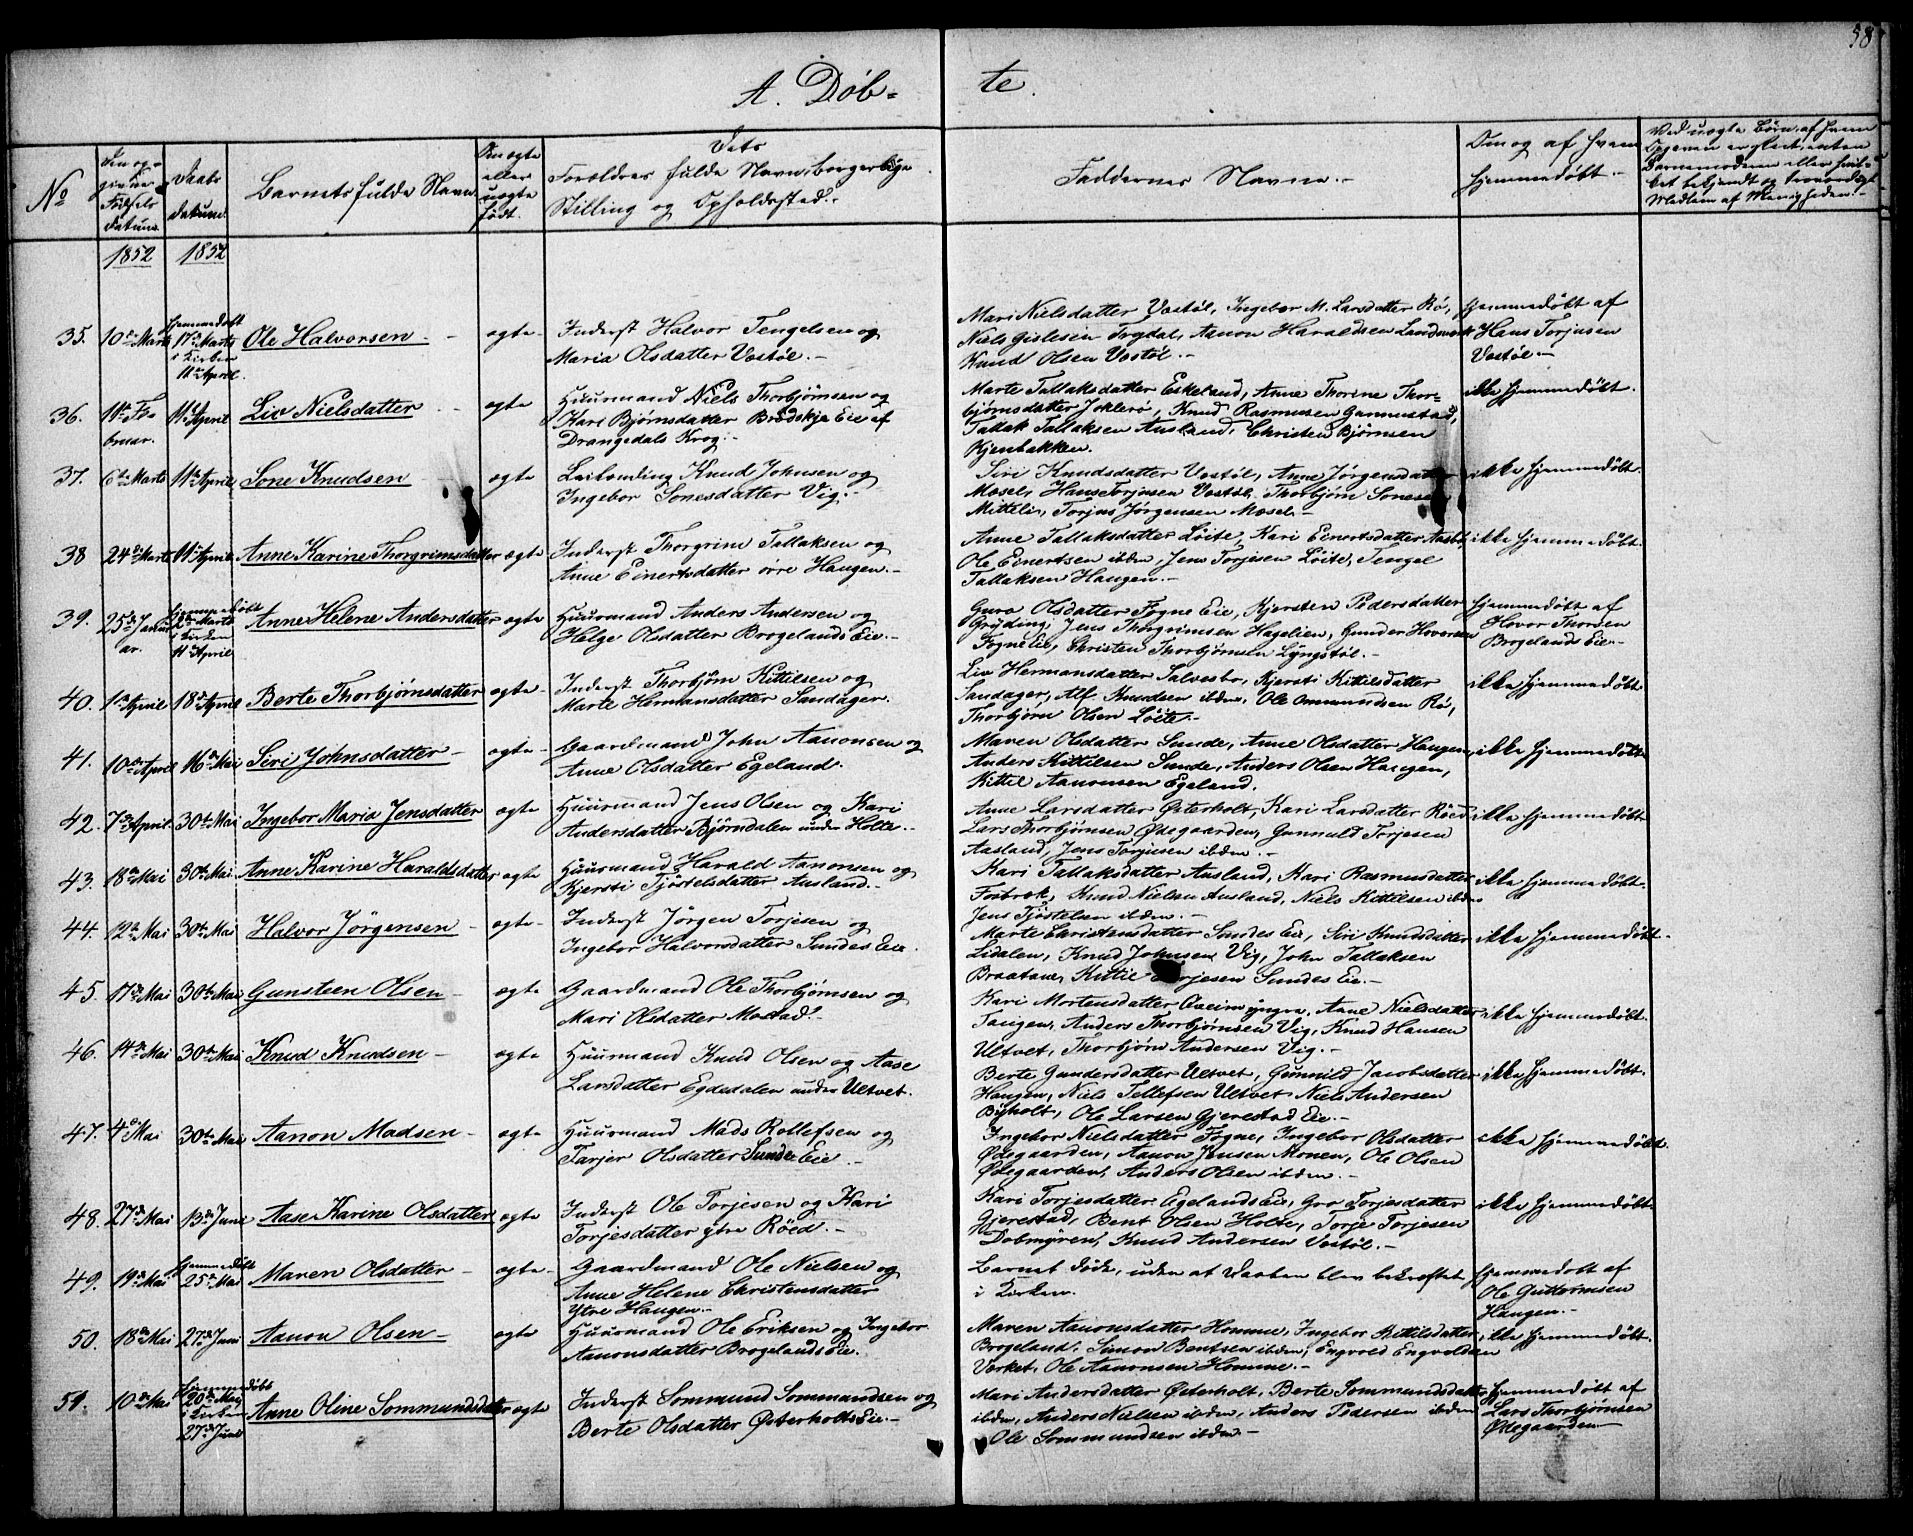 58
A. Døb-
te.
No
Den op-
givne
Fødsels
datum.
Daabs
datum.
Barnets fulde Navn.
Om ægte
eller
uægte
født.
Dets
Forældres fulde Navn, borgerlige
Stilling og Opholdssted.
Faddernes Navne.
Om og af hvem
hjemmedøbt.
Ved uægte Børn, af hvem
Opgaven er skeet, enten
Barnemoderen eller hvil-
ket bekjendt og troværdigt
Medlem af Menigheden.
1852 1852
35. 10de Marts hjemmedøbt
17de Marts
i Kirken
11te April.
Ole Halvorsen. ægte
Inderst Halvor Tengelsen og
Maria Olsdatter Vostøl.
Mari Nielsdatter Vostøl, Ingebor M. Larsdatter Rø,
Niels Gislesen Trydal, Aanon Haraldsen Landverk
Knud Olsen Vostøl.
hjemmedøbt af
Hans Torjusen
Vostøl.
36. 11te Fe-
bruar. 11te April Liv Nielsdatter ægte
Huusmand Niels Thorbjørnsen og
Kari Bjørnsdatter Brødskja Eie af
Drangsdals Krog.
Marte Tallaksdatter Eskeland, Anne Thorine Thor-
bjørnsdatter Joklerø, Knud Rasmusen Gunnestad,
Tallak Tallaksen Ausland, Christen Bjørnsen
Kjenbakken.
ikke hjemmedøbt.
37. 6te Marts 11te April Sone Knudsen ægte
Leilending Knud Johnsen og
Ingebor Sonesdatter Vig.
Siri Knudsdatter Vostøl, Anne Jørgensdatter
Mosel, Hans Torjusen Vostøl, Thorbjørn Sonesen
Mitteli, Torjus Jørgensen Mosel.
ikke hjemmedøbt.
38 24de Marts 11te April Anne Karine Thorgrimsdatter ægte
Inderst Thorgrim Tallaksen og
Anne Einertsdatter øvre Haugen.
Anne Tallaksdatter Løite, Kari Einertsdatter Aasbø,
Ole Einertsen ibdm, Jens Torjesen Løite, Tengel
Tallaksen Haugen.
ikke hjemmedøbt.
39. 25de Janu-
ar. hjemmedøbt
2den Marts
i Kirken
11te April
Anne Helene Andersdatter ægte
Huusmand Anders Andersen og
Helge Olsdatter Brogelands Eie.
Guro Olsdatter Fogne Eie, Kjersten Pedersdatter
Gryding, Jens Thorgrimsen Hagelien, Gunder Hoversen
Fogne Eie, Christen Thorbjørnsen Lyngstøl.
hjemmedøbt af
Hovor Thorsen
Brogelands Eie.
40. 1ste April 18de April Berte Thorbjørnsdatter ægte
Inderst Thorbjørn Kittilsen og
Marte Hermansdatter Sandager.
Liv Hermansdatter Salvesbø, Kjersti Kittilsdatter
Sandager, Alf Knudsen ibdm, Ole Ommundsen Rø,
Thorbjørn Olsen Løite.
ikke hjemmedøbt.
41. 10de April 16de Mai Siri Johnsdatter ægte
Gaardmand John Aanonsen og
Anne Olsdatter Egeland.
Maren Olsdatter Sunde, Anne Olsdatter Haugen,
Anders Kittilsen Sunde, Anders Olsen Haugen,
Kittil Aanonsen Egeland.
ikke hjemmedøbt.
42. 7de April 30te Mai Ingebor Maria Jensdatter ægte
Huusmand Jens Olsen og Kari
Andersdatter Bjørndalen under Holte.
Anne Larsdatter Østerholt, Kari Larsdatter Røed
Lars Thorbjørnsen Ødegaarden, Gunnuld Torjesen
Aasland, Jens Torjusen ibdm.
ikke hjemmedøbt.
43. 18de Mai 30te Mai Anne Karine Haraldsdatter ægte
Huusmand Harald Aanonsen og
Kjersti Tjøstelsdatter Ausland.
Kari Tallaksdatter Ausland, Kari Rasmusdatter
Fosbrok, Knud Nielsen Ausland, Niels Kittilsen ibdm
Jens Tjøstelsen ibdm.
ikke hjemmedøbt.
44. 12te Mai 30te Mai Halvor Jörgensen ægte
Inderst Jörgen Torjesen og
Ingebor Halvorsdatter Sundes Eie.
Marte Christensdatter Sundes Eie, Siri Knudsdatter
Lidalen, Knud Johnsen Vig, John Tallaksen
Braatane, Kittil Torjesen Sundes Eie.
ikke hjemmedøbt.
45. 17de Mai 30te Mai Gunsteen Olsen ægte
Gaardmand Ole Thorbjørnsen og
Mari Olsdatter Mostad.
Kari Mortensdatter Qveim yngre, Anne Nielsdatter
Tangen, Anders Thorbjørnsen Vig, Knud Hansen
Ultvet, Thorbjørn Andersen Vig.
ikke hjemmedøbt.
46. 14de Mai 30te Mai Knud Knudsen ægte
Huusmand Knud Olsen og Aase
Larsdatter Egdedalen under Ultvet.
Berte Gundersdatter Ultvet, Gunnild Jacobsdatter
Haugen, Niels Tellefsen Ultvet, Niels Andersen
Byholt, Ole Larsen Gjerestad Eie.
ikke hjemmedøbt.
47. 4de Mai 30te Mai Aanon Madsen ægte
Huusmand Mads Rollefsen og
Tarjer Olsdatter Sunde Eie.
Ingebor Nielsdatter Fogne, Ingebor Olsdatter
Ødegaarden, Aanon Jensen Monen, Ole Olsen
Ødegaarden, Anders Olsen ibdm.
ikke hjemmedøbt.
48. 27de Mai 13de Juni Aase Karine Olsdatter ægte
Inderst Ole Torjesen og Kari
Torjesdatter ytre Røed.
Kari Torjesdatter Egelands Eie, Gro Torjesdatter
Gjerestad, Bent Olsen Holte, Torje Torjesen
Dobmyren, Knud Andersen Vostøl.
ikke hjemmedøbt.
49. 19de Mai hjemmedøbt
25de Mai Maren Olsdatter ægte
Gaardmand Ole Nielsen og
Anne Helene Christensdatter
Ytre Haugen.
Barnet døde, uden at Daaben blev bekræftet
i Kirken.
hjemmedøbt af
Ole Guttormsen
Haugen.
50. 18de Mai 27de Juni Aanon Olsen ægte
Huusmand Ole Eriksen og Ingebor
Aanonsdatter Brogelands Eie.
Maren Aanonsdatter Homme, Ingebor Kittilsdatter
Brogeland, Simon Bentsen ibdm, Engvold Engvoldsen
Verket, Ole Aanonsen Homme.
ikke hjemmedøbt.
51. 10de Mai hjemmedøbt
20de Mai
i Kirken
27de Juni
Anne Oline Sommundsdatter ægte
Inderst Sommund Sommundsen og
Berte Olsdatter Østerholts Eie.
Mari Andersdatter Østerholt, Berte Sommundsdatter
ibdm, Anders Nielsen ibdm, Anders Pedersen ibdm
Ole Sommundsen ibdm.
hjemmedøbt af
Lars Thorbjørnsen
Ødegaarden